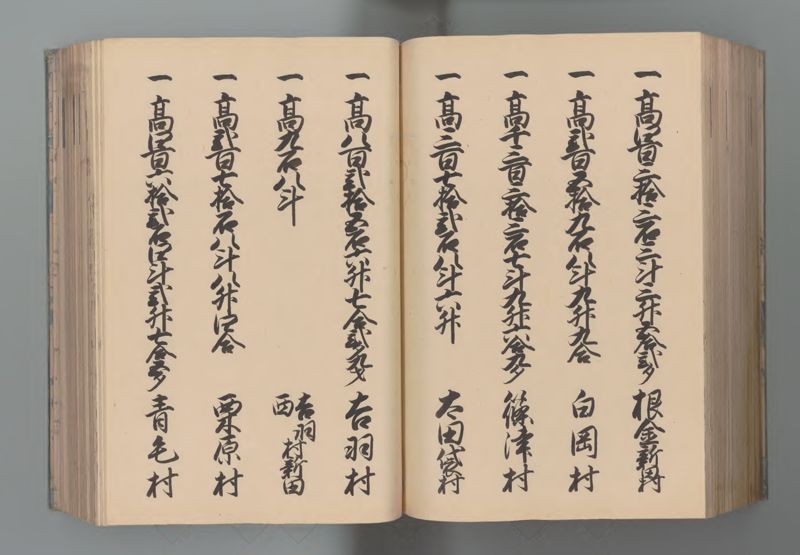 一高四百三拾三石三斗三升五合弐夕 根金新田村
一高弐百五拾九石八斗九升九合 白岡村
一高千三百三拾三石七斗九升六合九夕 篠津村
一高三百七拾弐石八斗六升 太田袋村
一高八百弐拾五石六升七合弐夕九才 古羽村
一高九石八斗 西古羽村新田
一高弐百七拾石八斗八升四合 栗原村
一高四百六拾弐石四斗弐升七合五夕 青毛村